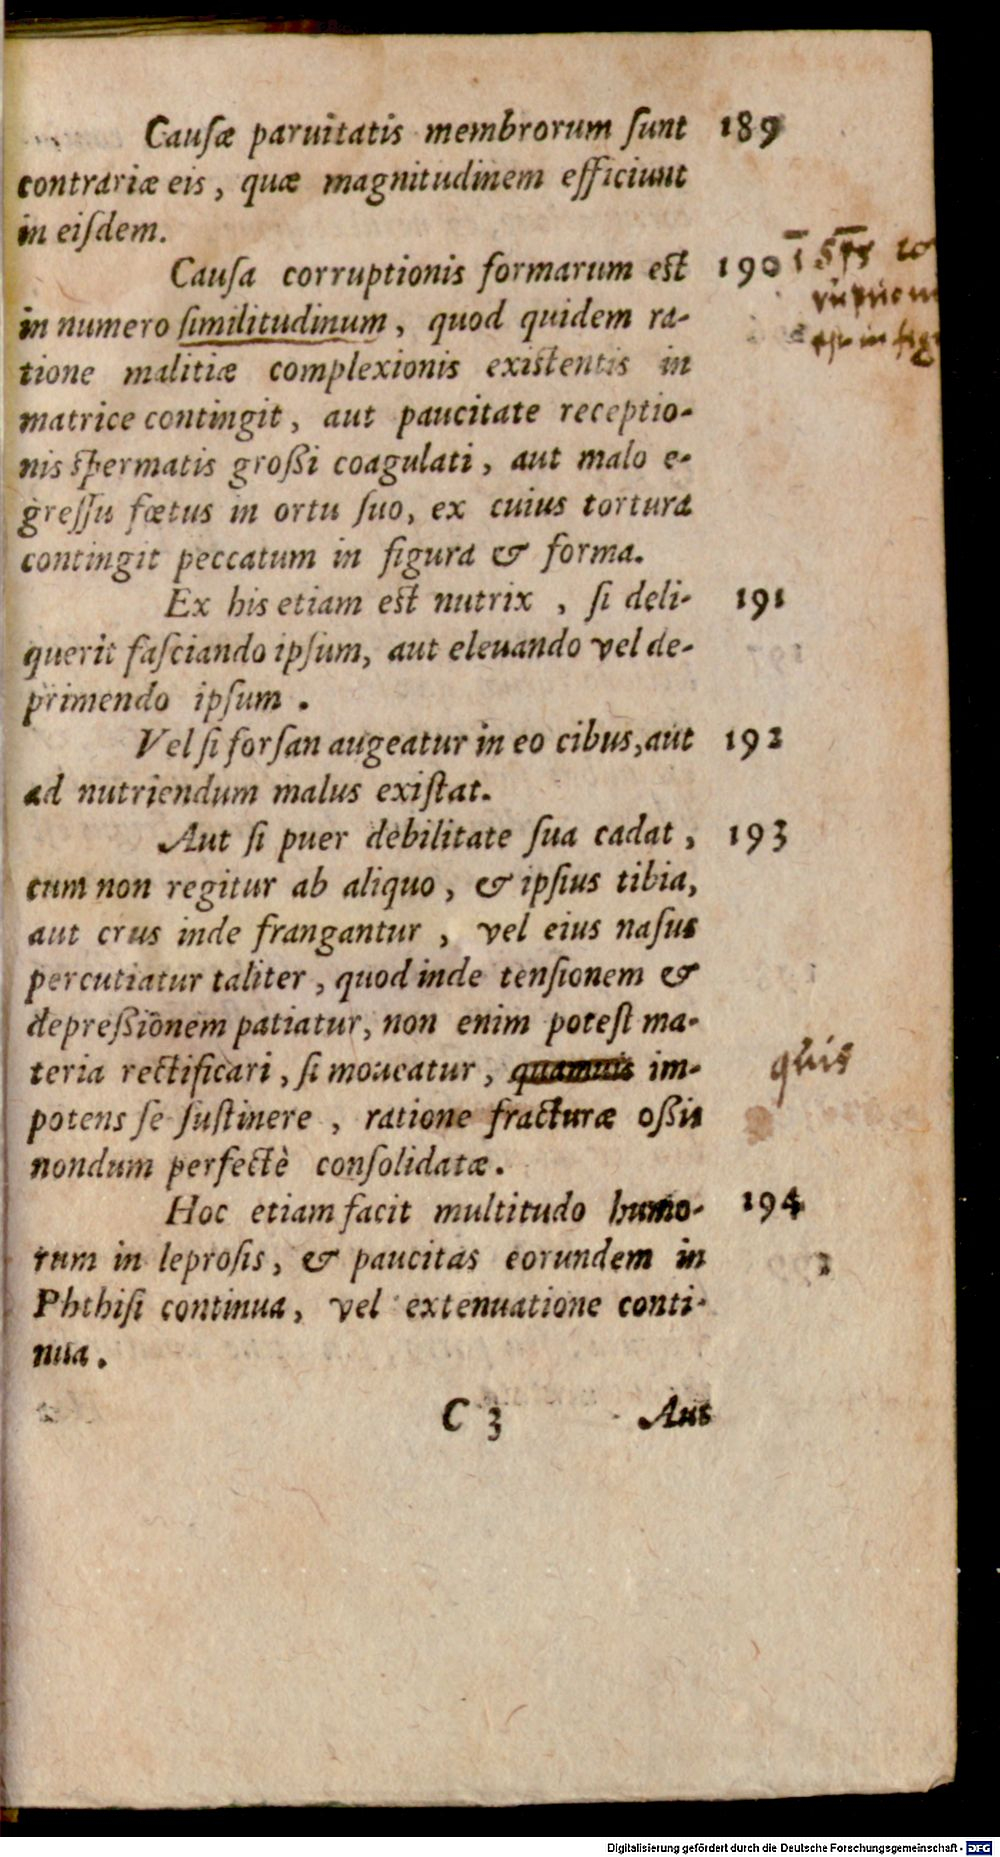 Causæ paruitatis membrorum ſunt 189
contrariæ eis, quæ magnitudinem efficiunt
in eiſdem.
Cauſa corruptionis formarum eſt 190
in numero ſimilitudinum, quod quidem ra-
tione malitiæ complexionis exiſtentis in
matrice contingit, aut paucitate receptio-
nis ſpermatis groſſi coagulati, aut malo e-
greſſu fœtus in ortu ſuo, ex cuius tortura
contingit peccatum in figura & forma.
Ex his etiam eſt nutrix , ſi deli- 191
querit faſciando ipſum, aut eleuando vel de-
primendo ipſum .
Vel ſi forſan augeatur in eo cibus, aut 192
ad nutriendum malus exiſtat.
Aut ſi puer debilitate ſua cadat , 193
cum non regitur ab aliquo , & ipſius tibia,
aut crus inde frangantur , vel eius naſus
percutiatur taliter , quod inde tenſionem &
depreſſionem patiatur, non enim poteſt ma-
teria rectificari , ſi moueatur , quamuis im- quis
potens ſe ſuſtinere , ratione fracturæ oſſis
nondum perfectè conſolidatæ.
Hoc etiam facit multitudo humo- 194
rum in leproſis, & paucitas eorundem in
Phthiſi continua, vel extenuatione conti-
nua.
C 3 Aut
Digitalisierung gefördert durch die Deutsche Forschungsgemeinschaft - DFG